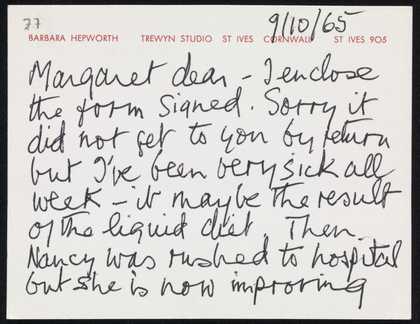 77
9/10/65
BARBARA HEPWORTH TREWYN STUDIO ST IVES CORNWALL ST IVES 905
Margaret dear – I enclose
the form signed. Sorry it
did not get to you by return
but I've been very sick all
week – it may be the result
of the liquid diet. Then
Nancy was rushed to hospital
but she is now improving